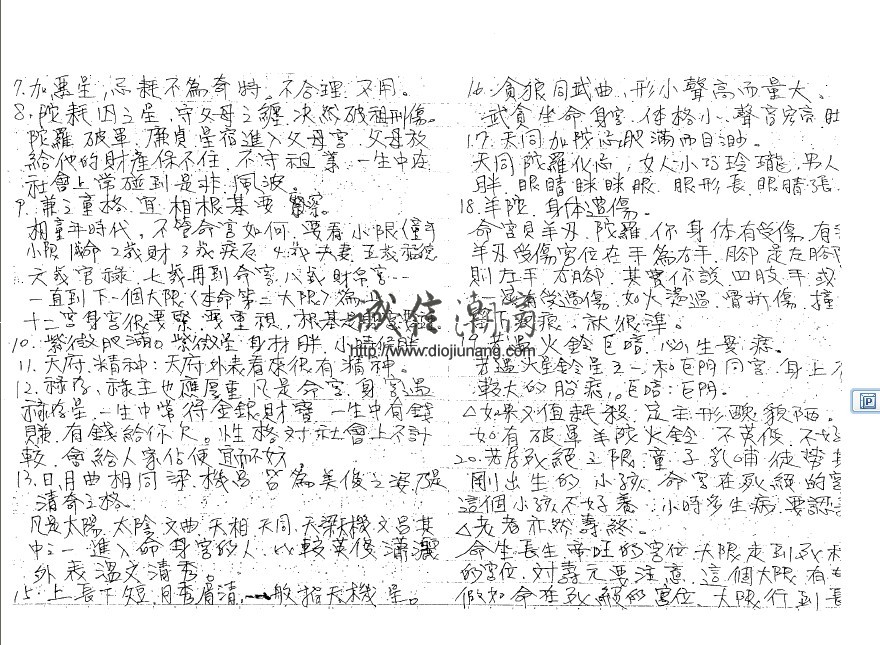 7.加惡星,忌耗不為奇特,不合理,又用。
8.陀耗囚之星,守父母之纏,決然破祖刑傷。
陀羅、破軍、廉貞星宿進入父母宮,父母放
給他的財產保不住,不守祖業,一生中在
社會上常碰到是非、風波。
9.兼之童格,宜相根基要察。
相童年時代,不管命宮如何,要看小限(童年
小限)1歲命2歲財3歲疾厄4歲夫妻,五歲福德
六歲官祿,七歲再到命宮,八歲財帛宮…
一直到下一個大限(本命第二大限)為
十二宮身宮很要緊,要重視,根基
10.紫微肥滿。紫微星身材胖,小時
11.天府精神:天府外表看來很有精神。
12.祿存、祿主也應厚重,凡是命宮身宮遇
祿存星,一生中常得金銀財寶,一生中有錢
賺,有錢給你欠。性格對社會上不計
較,會給人家佔便宜
13.日月曲相同梁機昌皆為美俊之姿,乃是
清奇之格。
凡是太陽、太陰、文曲、天相、天同、天梁、天機、文昌其
中之一進入命身宮的人,比較英俊瀟灑
外表溫文清秀。
15.上長下短,目秀眉清,一般指天機星。
16.貪狼同武曲,形小聲高而量大。
武貪坐命身宮,体格小、聲音宏亮
17.天同加陀忌肥滿而目渺。
天同陀羅化忌,女人小巧玲瓏,男人
胖,眼睛瞇瞇眼,眼形長,眼睛張
18.羊陀,身体遭傷。
命宮見羊刃、陀羅,你身体有受傷,有
羊刃受傷宮位在手為右手,腳是左腳
則左手右腳,其實你說四肢手或
是有受過傷,如火燙過,骨折傷,撞
留下疤痕,就很準。
19.若遇火鈴巨暗,必生異痣。
若遇火星鈴星之一和巨門同宮,身上
較大的胎痣,巨暗:巨門。
△如果又值耗殺,定主形醜貌陋。
如有破軍羊陀火鈴,不英俊,不好
20.若居死絕之限,童子乳哺徒勞
剛出生的小孩,命宮在死絕的宮
這個小孩不好養,小時多生病,要認
△老者亦然壽終。
命坐長生帝旺的宮位,大限走到死
的宮位,對壽元要注意,這個大限有
假如命在死絕的宮位,大限行到長
诚信潮商
http://www.diojiunang.com